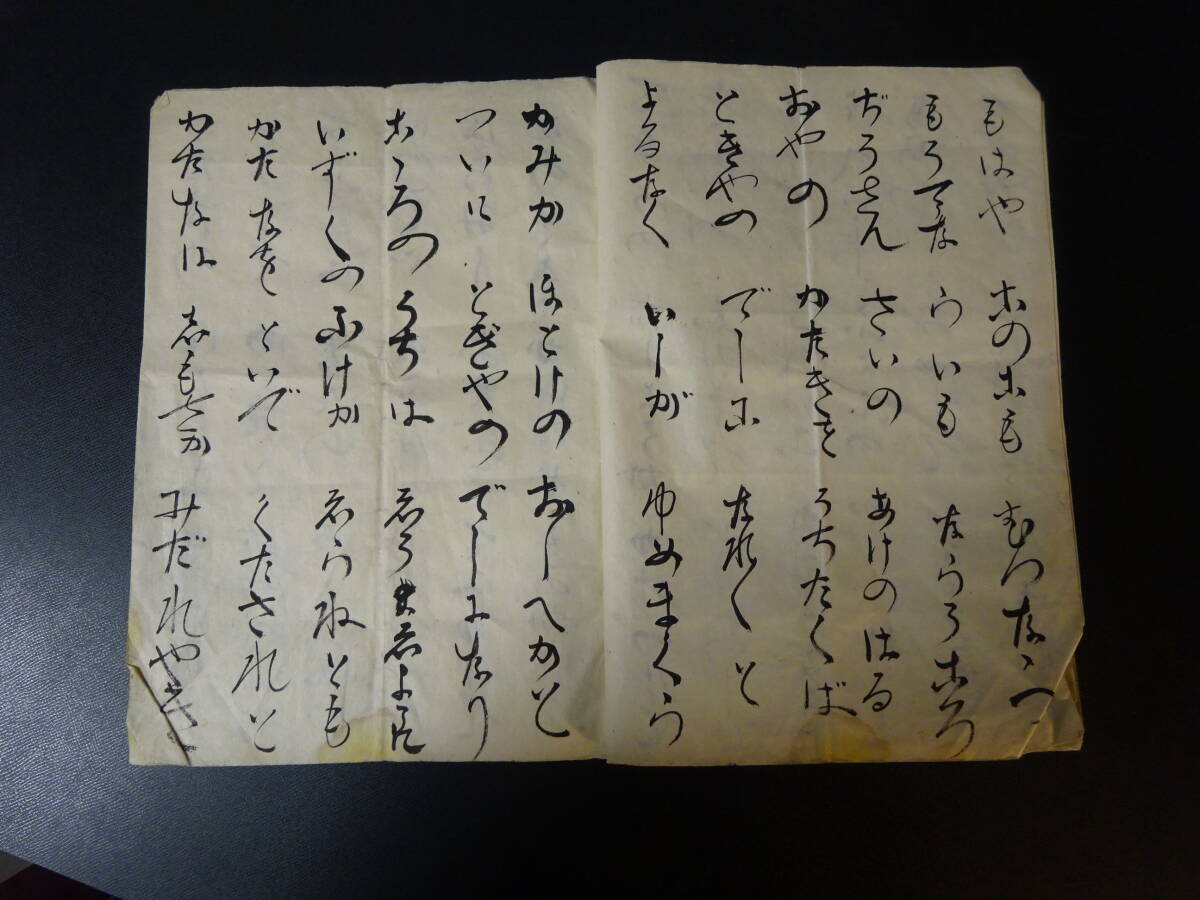 もはや このこも むつなゝつ
もうてな らいも ならうころ
ぢうさん さいの あけのはる
おやの かたきを うちたくば
ときやの でしに なれ〳〵と
よるなく いしが ゆめまくら
かみか ほとけの おしへかと
ついに とぎやの でしになり
こゝろの うちは
いずくの ふけか しらねども
かたなを といで くだされと
かたなは しもさか みだれやき